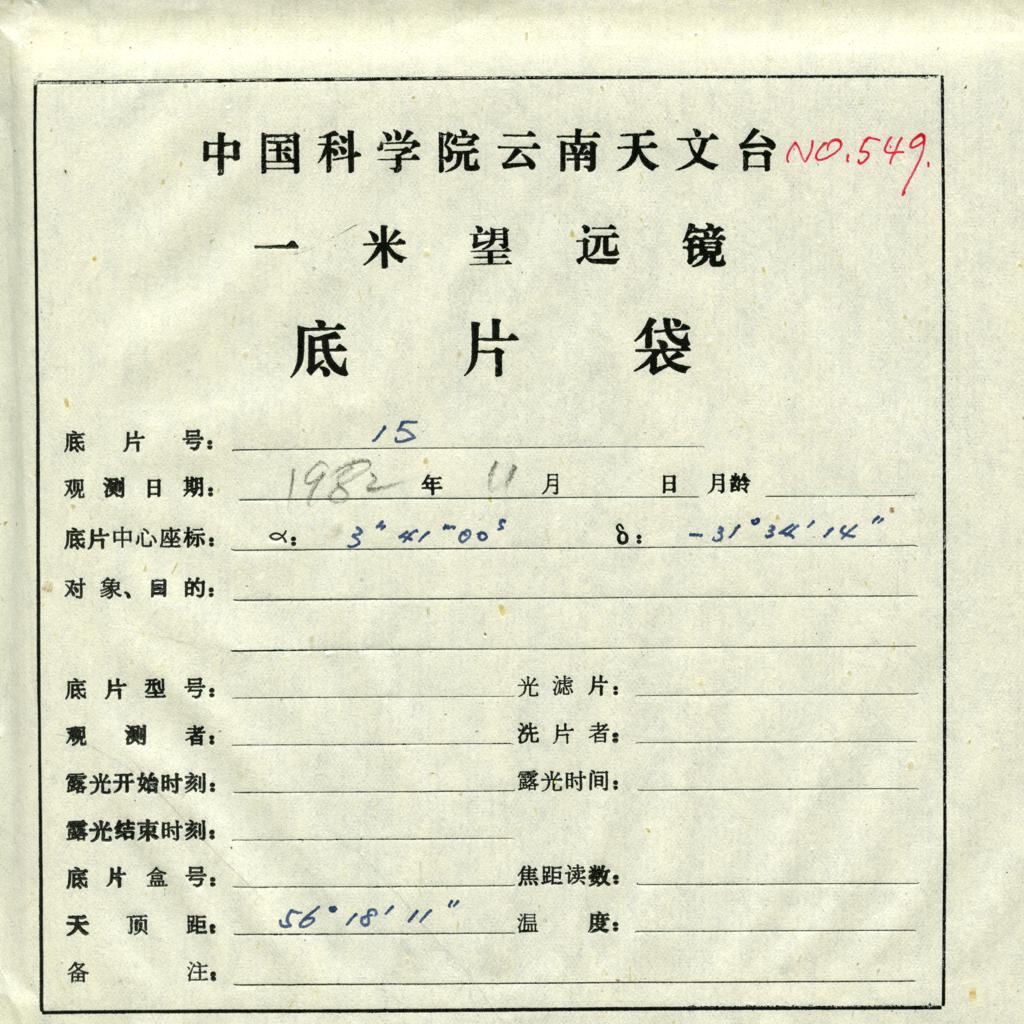 中国科学院云南天文台 NO.549.
一米望远镜
底片袋
底片号: 15
观测日期: 1982年 11月 日 月龄
底片中心座标: α: 3ʰ 41ᵐ 00ˢ δ: -31° 34′ 14″
对象、目的:
底片型号: 光滤片:
观测者: 洗片者:
露光开始时刻: 露光时间:
露光结束时刻:
底片盒号: 焦距读数:
天顶距: 56° 18′ 11″ 温度:
备注: